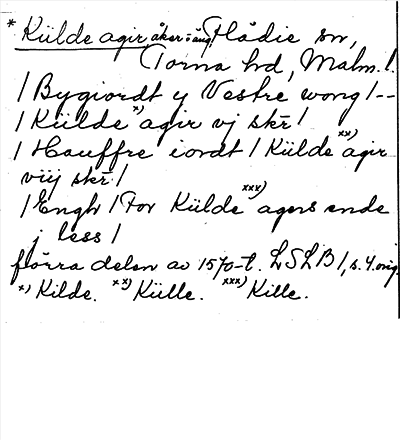 * Külde agir, åker o äng, Flädie sn,
Torna hd, Malm. l.
/ Bygiordt y Vestre wong / --
/ Külde x) agir vj skr̄ /
/ Hauffre iordt / Külde xx) agir
viij skr̄ /
/ Engh / For Külde xxx) agers ende
j less /
förra delen av 1570-t. LSLB 1, s. 4. orig.
x) Kilde. xx) Külle. xxx) Kille.